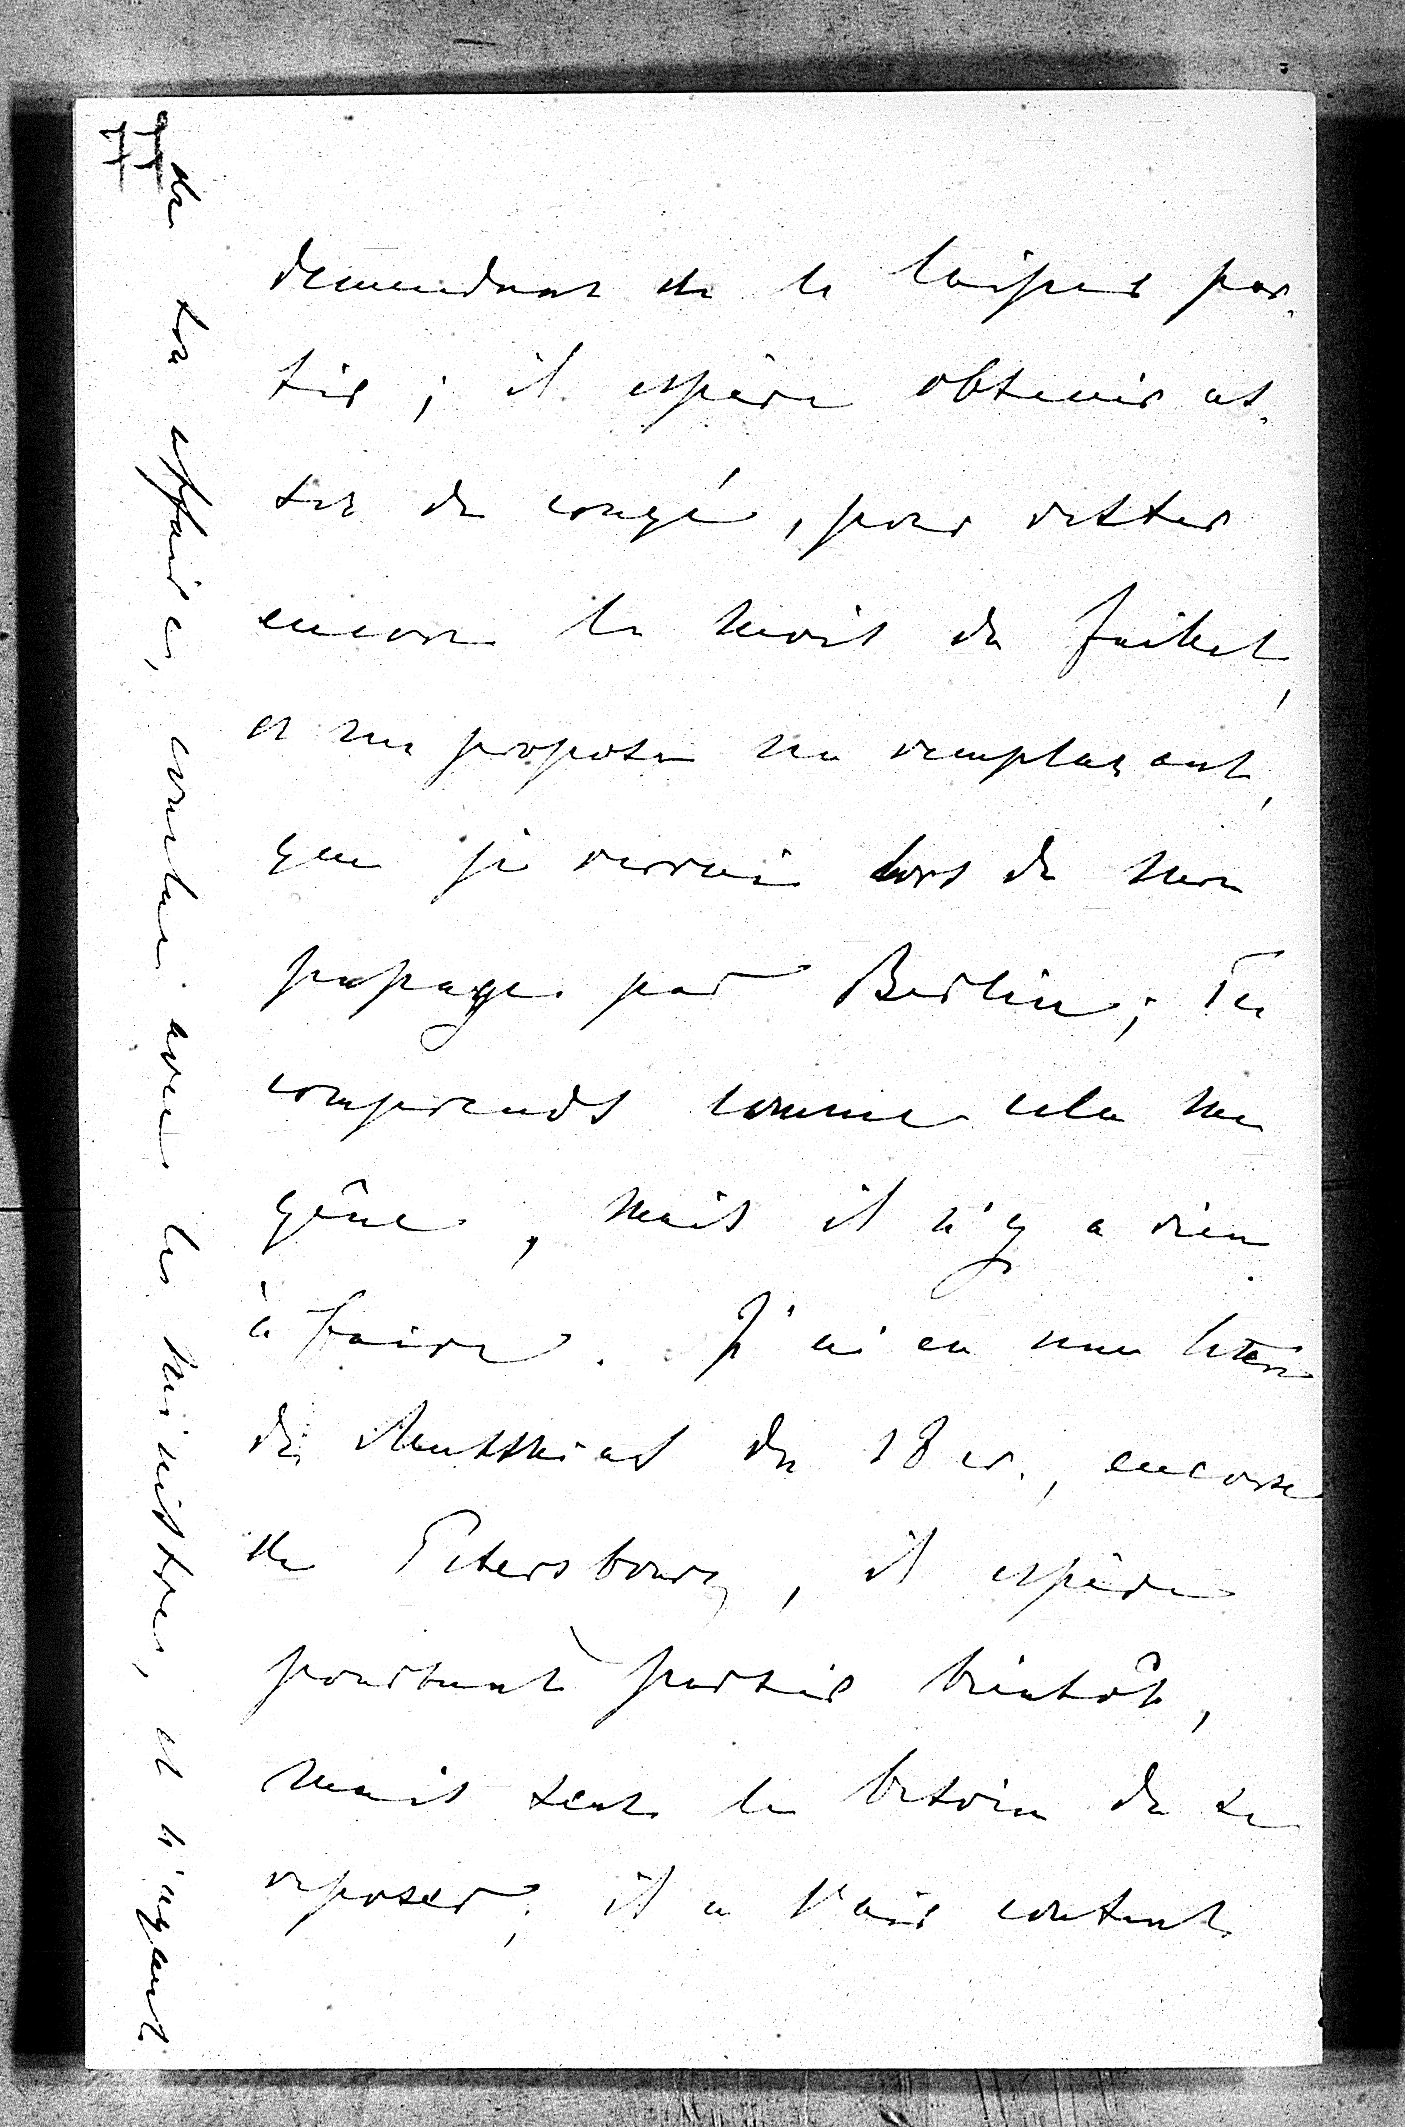 demandant de le laisser par-
tir ; il espère obtenir as-
sez de congé, pour rester
encore le mois de Juillet,
et me propose un remplaçant,
que je verrai lors de mon
passage par Berlin ; Tu
comprends comme cela me
gêne, mais il n'y a rien
à faire. J'ai eu une lettre
de du 18 cr., encore
de Petersbourg, il espère
pourtant partir bientôt,
mais sent le besoin de se
reposer ; il a l'air content
de ses affaires, avec les ministres, et